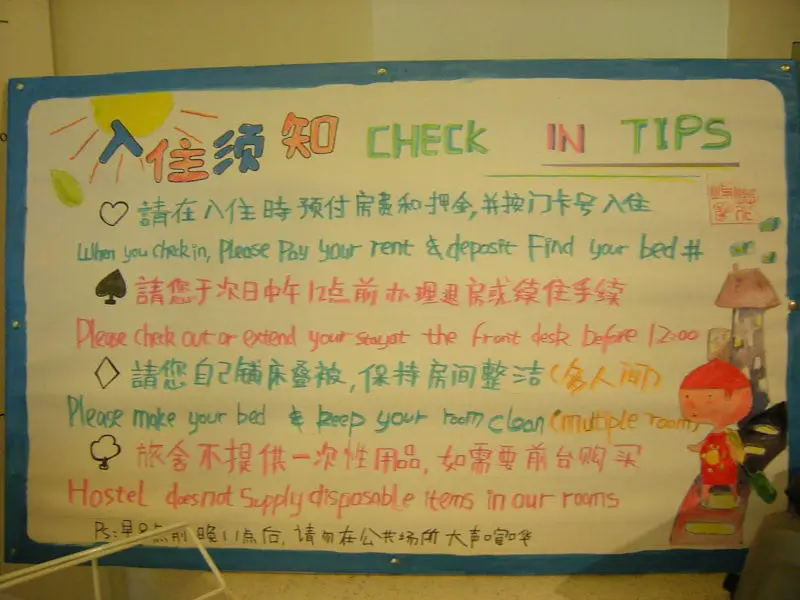 入住须知 CHECK IN TIPS
請在入住時预付房费和押金,并按门卡号入住
When you check in, Please Pay your rent & deposit Find your bed #
請您于次日中午12点前办理退房或续住手续
Please check out or extend your stayat the front desk before 12:00
請您自己铺床叠被,保持房间整洁(多人间)
Please make your bed & keep your room clean (multiple room)
旅舍不提供一次性用品,如需要前台购买
Hostel doesnot Supply disposable items in our rooms
Ps:早8点前晚11点后,请勿在公共场所大声喧哗